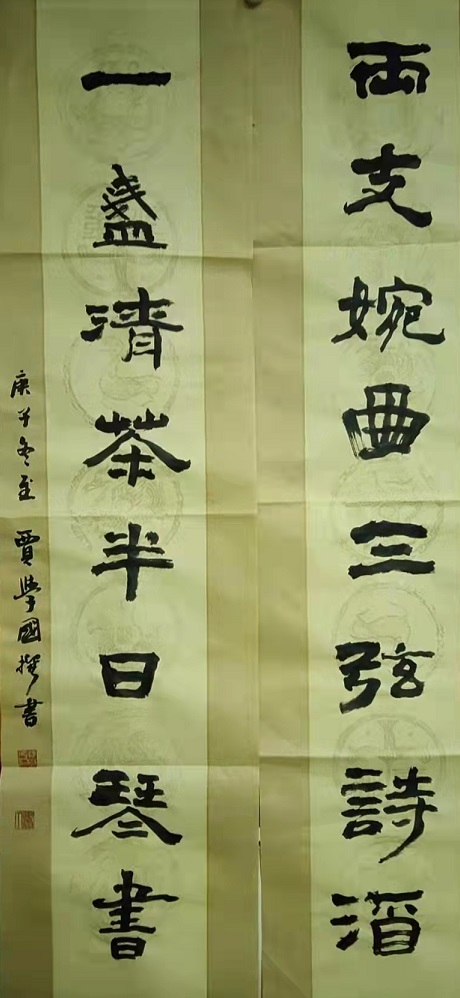 兩支婉曲三弦詩酒
一盞清茶半日琴書
庚子冬至 賈學國撰書